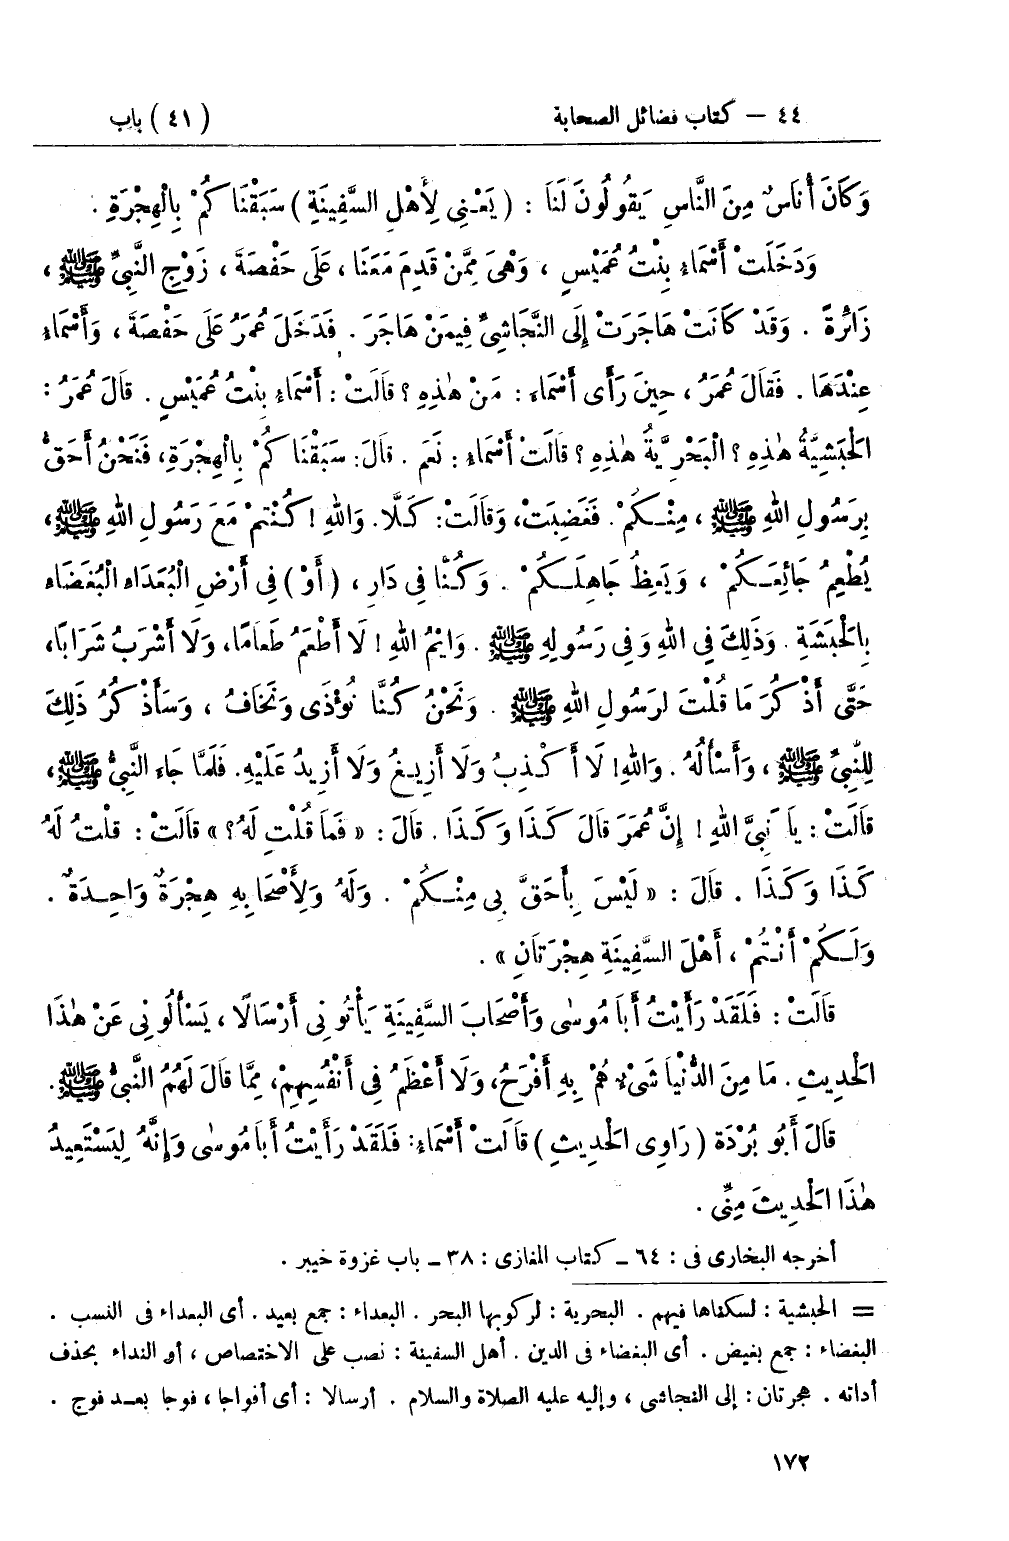 ٤٤ – كتاب فضائل الصحابة (٤١) باب
وَكَانَ أُنَاسٌ مِنَ النَّاسِ يَقُولُونَ لَنَا : ( يَعْنِي لِأَهْلِ السَّفِينَةِ ) سَبَقْنَاكُمْ بِالْهِجْرَةِ .
وَدَخَلَتْ أَسْمَاءُ بِنْتُ عُمَيْسٍ ، وَهْىَ مِمَّنْ قَدِمَ مَعَنَا ، عَلَى حَفْصَةَ ، زَوْجِ النَّبِيِّ ﷺ ،
زَائِرَةً . وَقَدْ كَانَتْ هَاجَرَتْ إِلَى النَّجَاشِيِّ فِيمَنْ هَاجَرَ . فَدَخَلَ عُمَرُ عَلَى حَفْصَةَ ، وَأَسْمَاءُ
عِنْدَهَا . فَقَالَ عُمَرُ ، حِينَ رَأَى أَسْمَاءَ : مَنْ هٰذِهِ ؟ قَالَتْ : أَسْمَاءُ بِنْتُ عُمَيْسٍ . قَالَ عُمَرُ :
الْحَبَشِيَّةُ هٰذِهِ ؟ الْبَحْرِيَّةُ هٰذِهِ ؟ قَالَتْ أَسْمَاءُ : نَعَمْ . قَالَ: سَبَقْنَاكُمْ بِالْهِجْرَةِ، فَنَحْنُ أَحَقُّ
بِرَسُولِ اللهِ ﷺ ، مِنْكُمْ . فَغَضِبَتْ، وَقَالَتْ: كَلَّا. وَاللهِ ! كُنْتُمْ مَعَ رَسُولِ اللهِ ﷺ،
يُطْعِمُ جَائِعَكُمْ ، وَيَعِظُ جَاهِلَكُمْ . وَكُنَّا فِي دَارِ ، ( أَوْ ) فِي أَرْضِ الْبُعَدَاءِ الْبُغَضَاءِ
بِالْحَبَشَةِ . وَذَلِكَ فِي اللهِ وَفِي رَسُولِهِ ﷺ . وَايْمُ اللهِ ! لَا أَطْعَمُ طَعَامًا، وَلَا أَشْرَبُ شَرَابًا،
حَتَّى أَذْكُرَ مَا قُلْتَ لِرَسُولِ اللهِ ﷺ . وَنَحْنُ كُنَّا نُؤْذَى وَنَخَافُ ، وَسَأَذْكُرُ ذَلِكَ
لِلنَّبِيِّ ﷺ ، وَأَسْأَلُهُ . وَاللهِ! لَا أَكْذِبُ وَلَا أَزِيغُ وَلَا أَزِيدُ عَلَيْهِ. فَلَمَّا جَاءَ النَّبِيُّ ﷺ،
قَالَتْ : يَا نَبِيَّ اللهِ ! إِنَّ عُمَرَ قَالَ كَذَا وَكَذَا . قَالَ : « فَمَا قُلْتِ لَهُ؟ » قَالَتْ : قُلْتُ لَهُ
كَذَا وَكَذَا . قَالَ : « لَيْسَ بِأَحَقَّ بِي مِنْكُمْ . وَلَهُ وَلِأَصْحَابِهِ هِجْرَةٌ وَاحِدَةٌ .
وَلَكُمْ أَنْتُمْ ، أَهْلَ السَّفِينَةِ هِجْرَتَانِ » .
قَالَتْ : فَلَقَدْ رَأَيْتُ أَبَا مُوسٰى وَأَصْحَابَ السَّفِينَةِ يَأْتُونِي أَرْسَالًا ، يَسْأَلُونِي عَنْ هٰذَا
الْحَدِيثِ . مَا مِنَ الدُّنْيَا شَيْءٌ هُمْ بِهِ أَفْرَحُ، وَلَا أَعْظَمُ فِي أَنْفُسِهِمْ، مِمَّا قَالَ لَهُمُ النَّبِيُّ ﷺ.
قَالَ أَبُو بُرْدَةَ ( رَاوِى الْحَدِيثِ ) قَالَتْ أَسْمَاءُ: فَلَقَدْ رَأَيْتُ أَبَا مُوسٰى وَإِنَّهُ لِيَسْتَعِيدُ
هٰذَا الْحَدِيثَ مِنِّي .
أخرجه البخارى فى : ٦٤ ـ كتاب المغازى : ٣٨ ـ باب غزوة خيبر .
= الحبشية : لسكناها فيهم . البحرية : لركوبها البحر . البعداء : جمع بعيد . أى البعداء فى النسب .
البغضاء : جمع بغيض . أى البغضاء فى الدين . أهل السفينة : نصب على الاختصاص ، أو النداء بحذف
أداته . هجرتان : إلى النجاشى ، وإليه عليه الصلاة والسلام . أرسالا : أى أفواجا ، فوجا بعد فوج .
١٧٢